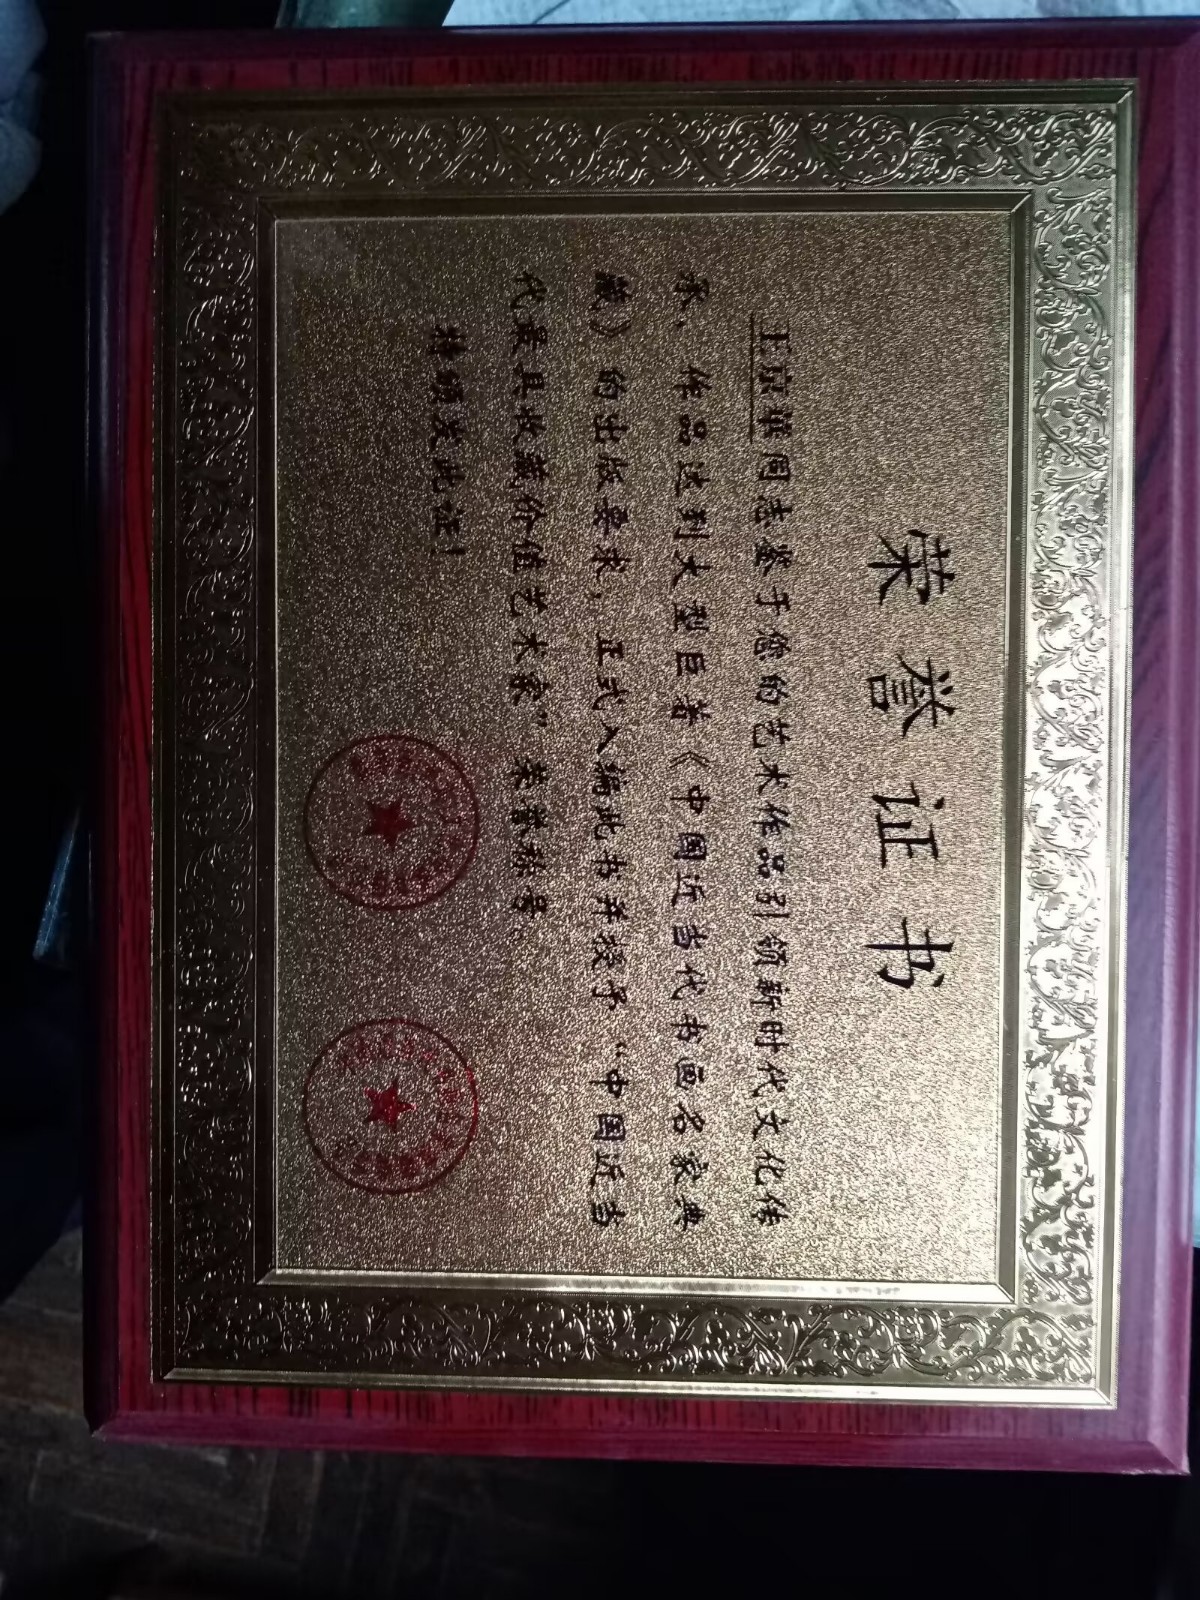 荣誉证书
王京华同志鉴于您的艺术作品引领新时代文化传
承，作品达到大型巨著《中国近当代书画名家典
藏》的出版要求，正式入编此书并授予“中国近当
代最具收藏价值艺术家”荣誉称号。
特颁发此证！